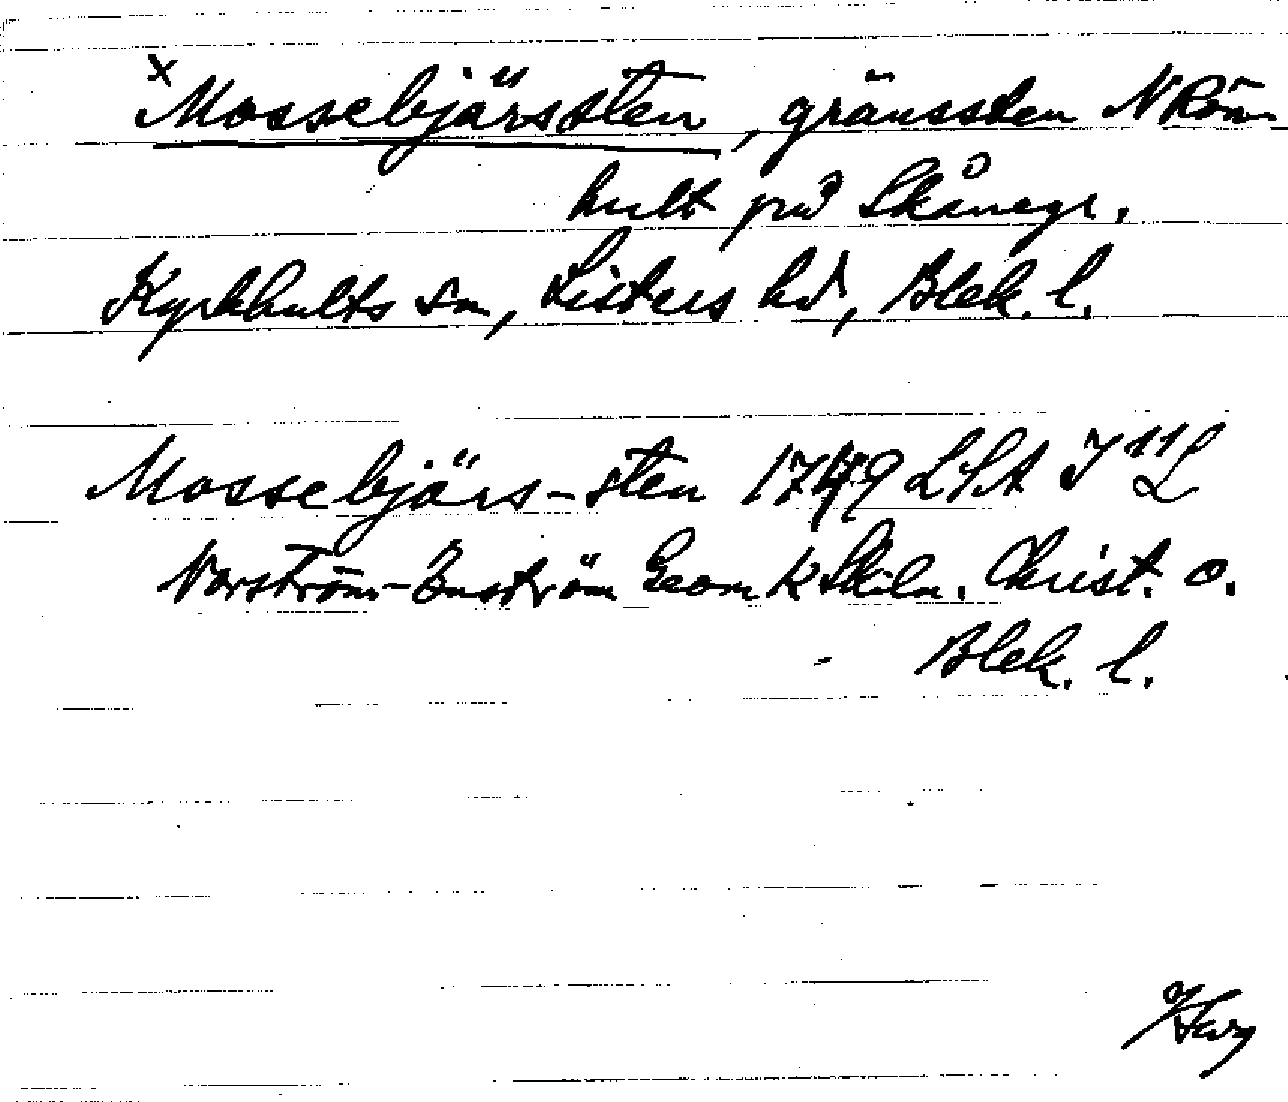 x Mossebjärssten, gränssten N Röm-
hult på Skånegr.
Kyrkhults sn, Listers hd, Blek. l.
Mossebjärs-sten 1749 LSA I 11 L
Norström-Enström Geom K Skiln. Christ. o.
Blek. l.